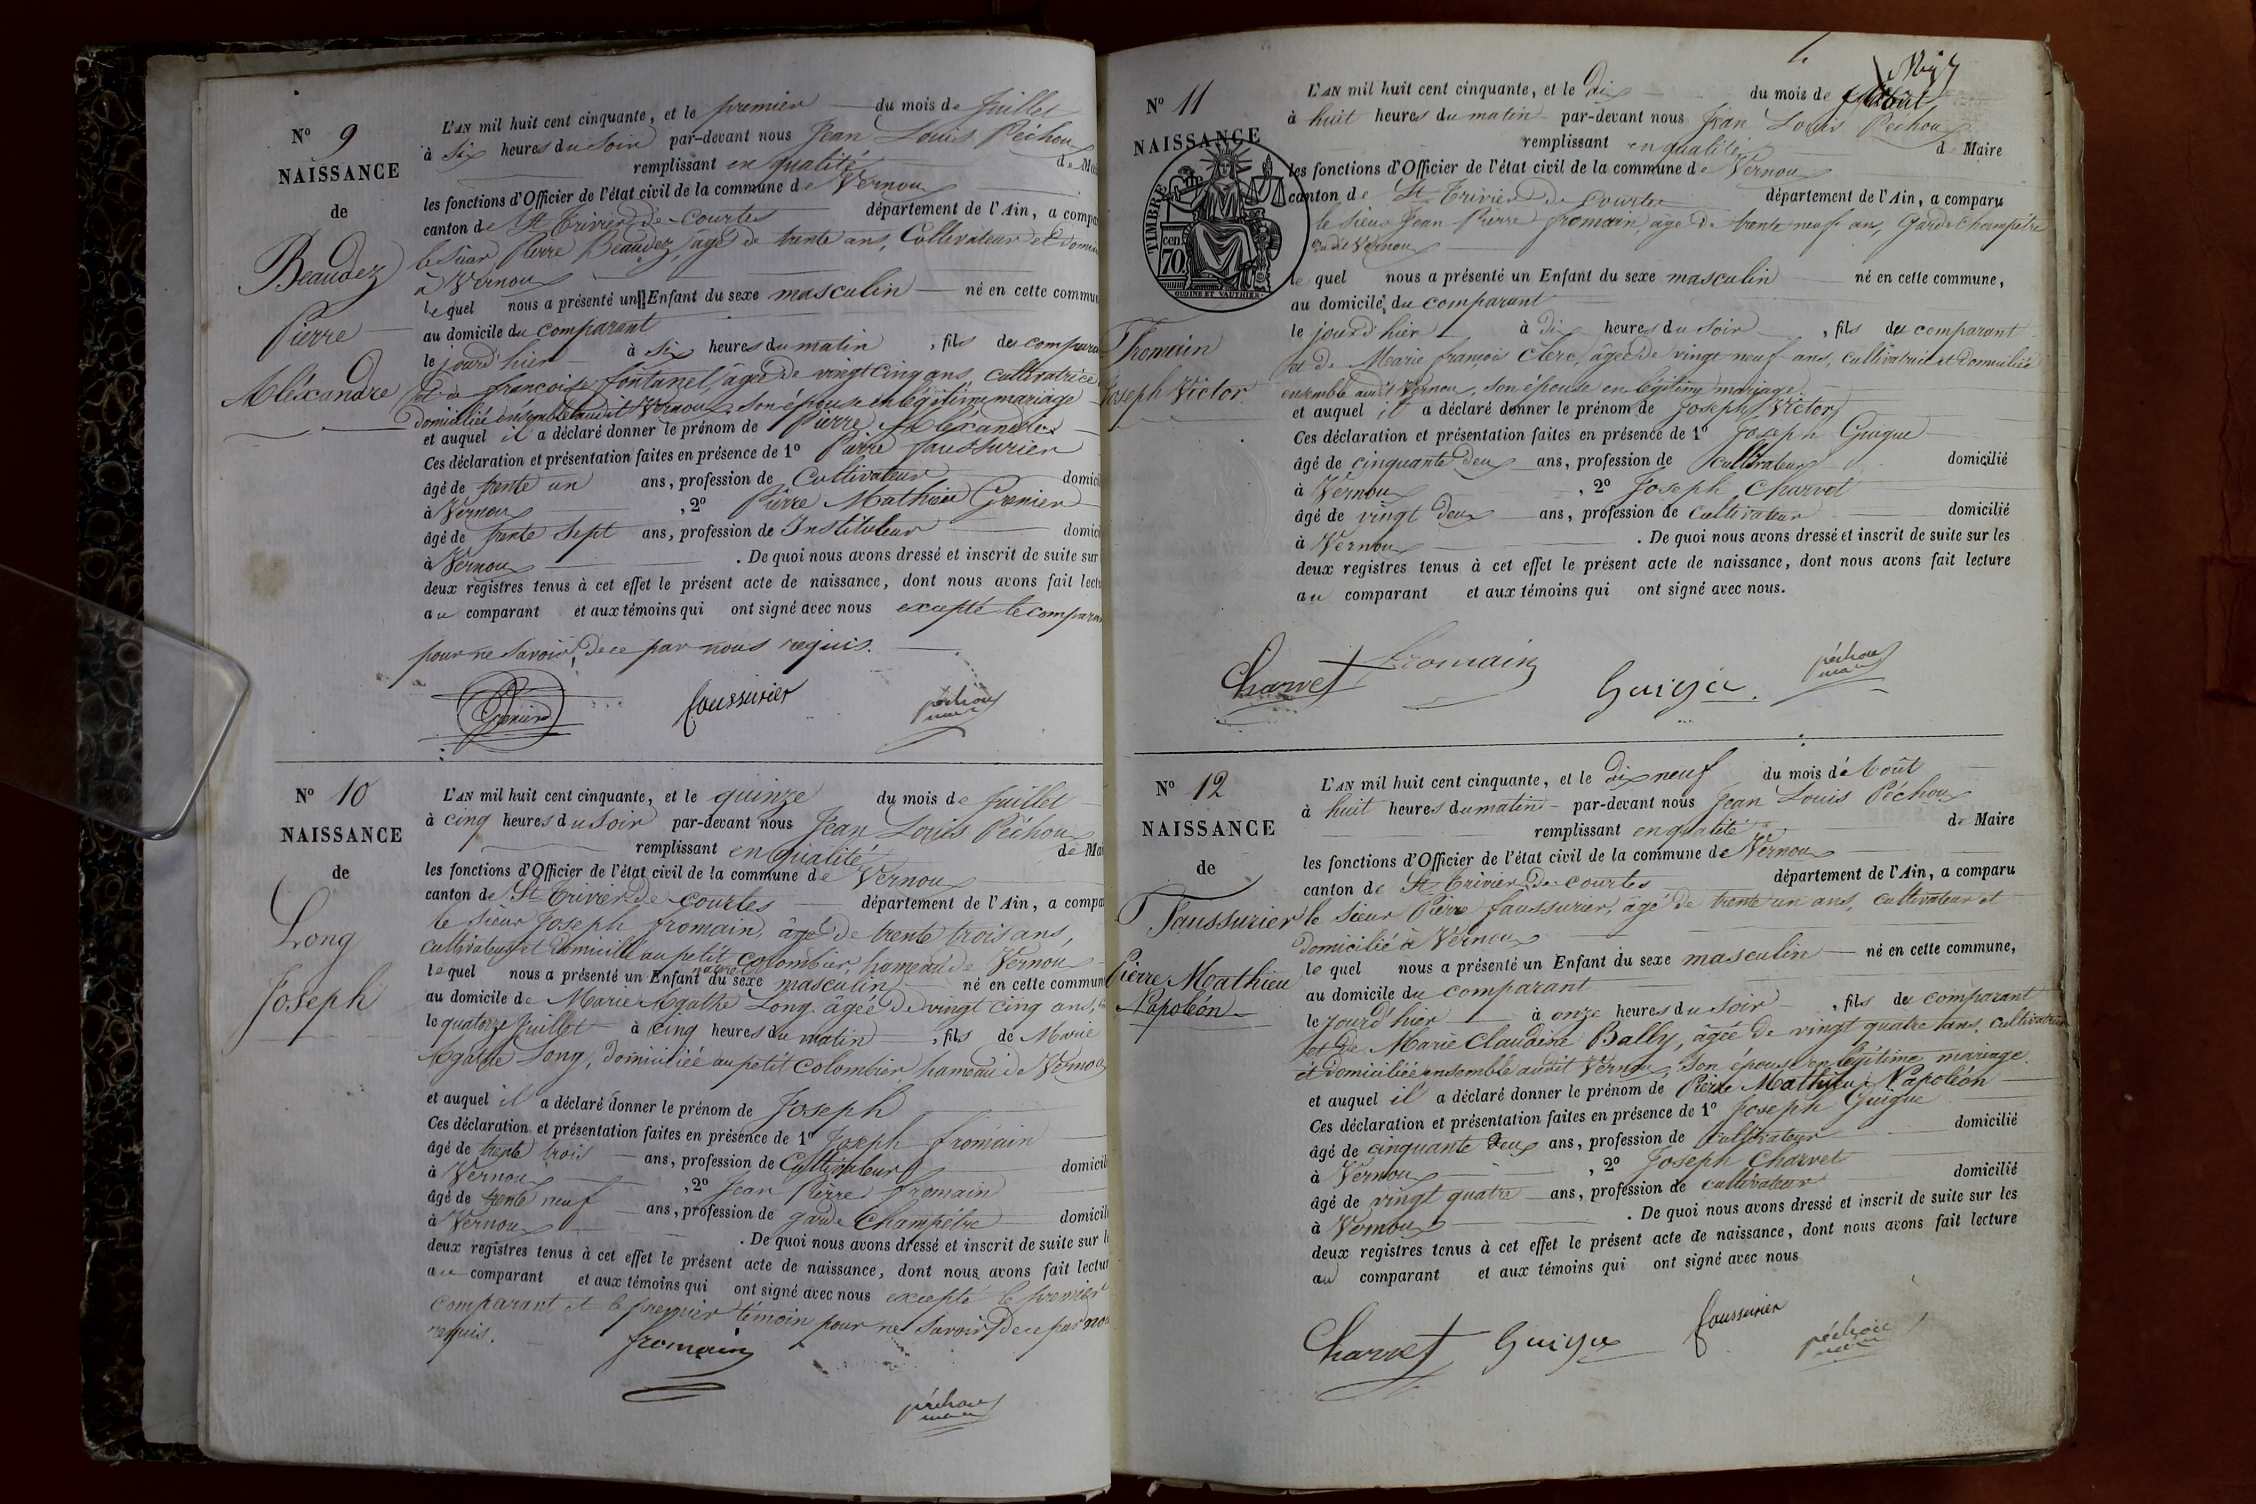 N° 9
NAISSANCE
de
Beaudez
Pierre
Aléxandre
L'AN mil huit cent cinquante, et le premier du mois de Juillet
à six heures du soir par-devant nous Jean Louis Péchoux
remplissant en qualité de
les fonctions d'Officier de l'état civil de la commune de Vernoux
canton de St Trivier de Courtes département de l'Ain, a
le sieur Pierre Beaudez, âgé de trente ans, Cultivateur et
à Vernoux
lequel nous a présenté un Enfant du sexe masculin né en cette
au domicile du comparant
le jourd'hier à six heures du matin, fils du
et de françoise fontanel, âgée de vingt cinq ans, cultivatrice
domiciliée ensemble audit Vernoux, son épouse en légitime mariage
et auquel il a déclaré donner le prénom de Pierre Aléxandre
Ces déclaration et présentation faites en présence de 1° Pierre faussurier
âgé de trente un ans, profession de Cultivateur
à Vernoux, 2° Pierre Mathieu Grenier
âgé de trente sept ans, profession de Instituteur
à Vernoux. De quoi nous avons dressé et inscrit de suite sur
deux registres tenus à cet effet le présent acte de naissance, dont nous avons fait
au comparant et aux témoins qui ont signé avec nous excepté le
pour ne savoir, de ce par nous requis.
Grenier faussurier péchoux maire
N° 10
NAISSANCE
de
Long
Joseph
L'AN mil huit cent cinquante, et le quinze du mois de Juillet
à cinq heures du soir par-devant nous Jean Louis Péchoux
remplissant en qualité de
les fonctions d'Officier de l'état civil de la commune de Vernoux
canton de St Trivier de Courtes département de l'Ain, a
le sieur Joseph fromain, âgé de trente trois ans,
cultivateur et domicilié au petit colombier, hameau de Vernoux
lequel nous a présenté un Enfant naturel du sexe masculin né en cette
au domicile de Marie Agathe Long, âgée de vingt cinq ans,
le quatorze Juillet à cinq heures du matin, fils de Marie
Agathe Long, domiciliée au petit colombier, hameau de Vernoux
et auquel il a déclaré donner le prénom de Joseph
Ces déclaration et présentation faites en présence de 1° Joseph fromain
âgé de trente trois ans, profession de Cultivateur
à Vernoux, 2° Jean Pierre fromain
âgé de trente neuf ans, profession de garde Champêtre
à Vernoux. De quoi nous avons dressé et inscrit de suite sur
deux registres tenus à cet effet le présent acte de naissance, dont nous avons fait
au comparant et aux témoins qui ont signé avec nous excepté le premier
comparant et le premier témoin pour ne savoir, de ce par
requis.
fromain
péchoux maire
N° 11
NAISSANCE
TIMBRE
cen. 70
OUDINÉ ET VAUTHIER
Fromain
Joseph Victor
L'AN mil huit cent cinquante, et le dix du mois de Août
à huit heures du matin par-devant nous Jean Louis Péchoux
remplissant en qualité de Maire
les fonctions d'Officier de l'état civil de la commune de Vernoux
canton de St Trivier de Courtes département de l'Ain, a comparu
le sieur Jean Pierre fromain, âgé de trente neuf ans, Garde Champêtre
dudit Vernoux
lequel nous a présenté un Enfant du sexe masculin né en cette commune,
au domicile du comparant
le jourd'hier à dix heures du soir, fils du comparant
et de Marie françoise Clerc, âgée de vingt neuf ans, cultivatrice et domiciliée
ensemble audit Vernoux, son épouse en légitime mariage
et auquel il a déclaré donner le prénom de Joseph Victor
Ces déclaration et présentation faites en présence de 1° Joseph Guigue
âgé de cinquante deux ans, profession de cultivateur domicilié
à Vernoux, 2° Joseph Charvet
âgé de vingt deux ans, profession de cultivateur domicilié
à Vernoux. De quoi nous avons dressé et inscrit de suite sur les
deux registres tenus à cet effet le présent acte de naissance, dont nous avons fait lecture
au comparant et aux témoins qui ont signé avec nous.
Charvet fromain Guigue péchoux maire
N° 12
NAISSANCE
de
Faussurier
Pierre Mathieu
Napoléon
L'AN mil huit cent cinquante, et le dix neuf du mois d'Août
à huit heures du matin par-devant nous Jean Louis Péchoux
remplissant en qualité de Maire
les fonctions d'Officier de l'état civil de la commune de Vernoux
canton de St Trivier de Courtes département de l'Ain, a comparu
le sieur Pierre faussurier, âgé de trente un ans, cultivateur et
domicilié à Vernoux
lequel nous a présenté un Enfant du sexe masculin né en cette commune,
au domicile du comparant
le jourd'hier à onze heures du soir, fils du comparant
et de Marie Claudine Bally, âgée de vingt quatre ans, cultivatrice
et domiciliée ensemble audit Vernoux, son épouse en légitime mariage
et auquel il a déclaré donner le prénom de Pierre Mathieu Napoléon
Ces déclaration et présentation faites en présence de 1° Joseph Guigue
âgé de cinquante deux ans, profession de cultivateur domicilié
à Vernoux, 2° Joseph Charvet
âgé de vingt quatre ans, profession de cultivateur domicilié
à Vernoux. De quoi nous avons dressé et inscrit de suite sur les
deux registres tenus à cet effet le présent acte de naissance, dont nous avons fait lecture
au comparant et aux témoins qui ont signé avec nous
Charvet Guigue faussurier péchoux maire